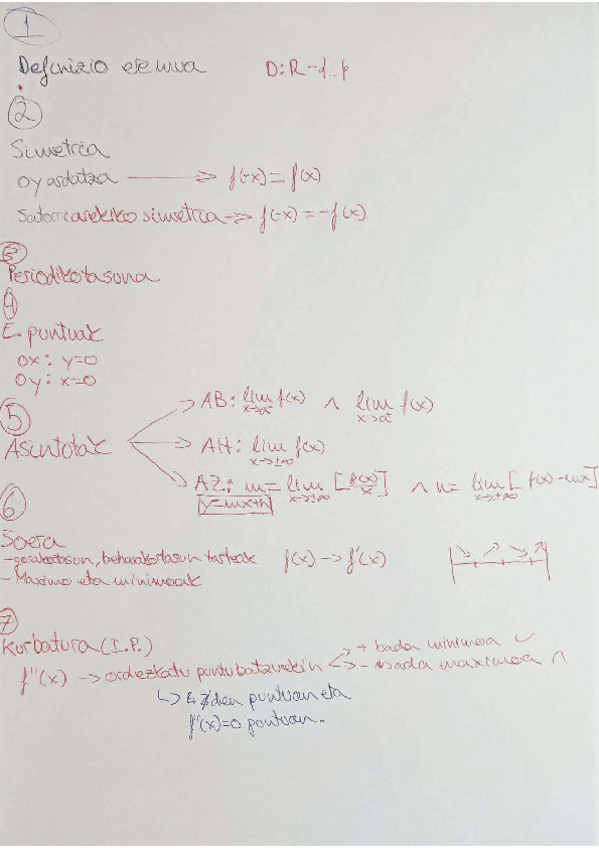 1
Definizio eremua D: R - {...}
2
Simetria
OY ardatza → f(-x) = f(x)
Jatorriarekiko simetria → f(-x) = -f(x)
3
Periodikotasuna
4
E. puntuak
OX: y=0
OY: x=0
5
Asintotak
AB: lim x→a⁻ f(x) ∧ lim x→a⁺ f(x)
AH: lim x→±∞ f(x)
AZ: m = lim x→±∞ [f(x)/x] ∧ n = lim x→±∞ [f(x) - mx]
y=mx+n
6
- gorakortasun, beherakortasun tarteak f(x) → f'(x)
- Maximo eta minimoak
7
Kurbatura (I.P.)
f''(x) → ordezkatu puntu batzuekin
+ bada minimoa ∪
- bada maximoa ∩
↳ den puntuan eta
f''(x)=0 puntuan.